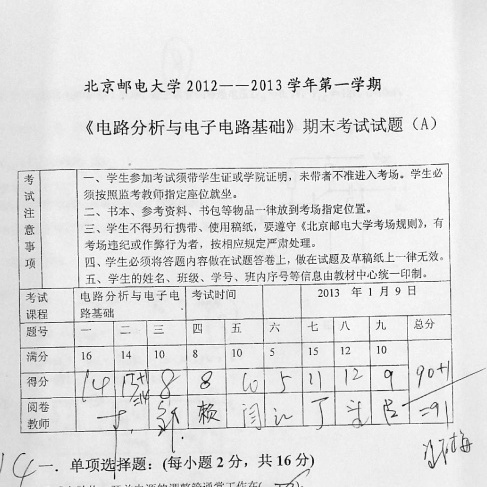 北京邮电大学 2012——2013 学年第一学期
《电路分析与电子电路基础》期末考试试题（A）
考试注意事项
一、学生参加考试须带学生证或学院证明，未带者不准进入考场。学生必
须按照监考教师指定座位就坐。
二、书本、参考资料、书包等物品一律放到考场指定位置。
三、学生不得另行携带、使用稿纸，要遵守《北京邮电大学考场规则》，有
考场违纪或作弊行为者，按相应规定严肃处理。
四、学生必须将答题内容做在试题答卷上，做在试题及草稿纸上一律无效。
五、学生的姓名、班级、学号、班内序号等信息由教材中心统一印制。
考试课程 电路分析与电子电路基础 考试时间 2013 年 1 月 9 日
题号 一 二 三 四 五 六 七 八 九 总分
满分 16 14 10 8 10 5 15 12 10
得分 14 13+1 =14 8 8 10 5 11 12 9 90+1
阅卷教师 赖 闫 丁 =91
14 一．单项选择题：(每小题 2 分，共 16 分)